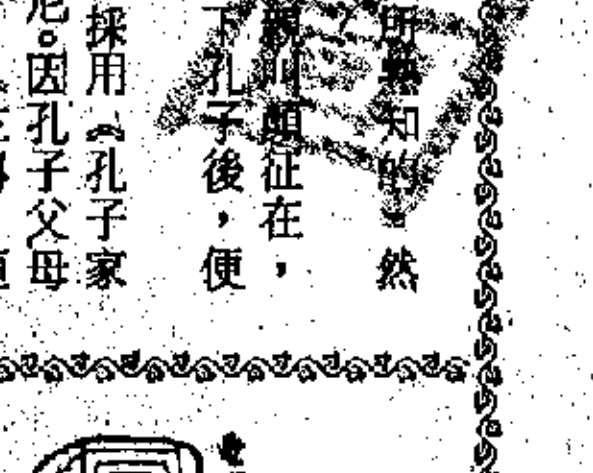 所熟知的。然
親叫顏征在，
下孔子後，便
採用《孔子家
尼。因孔子父母